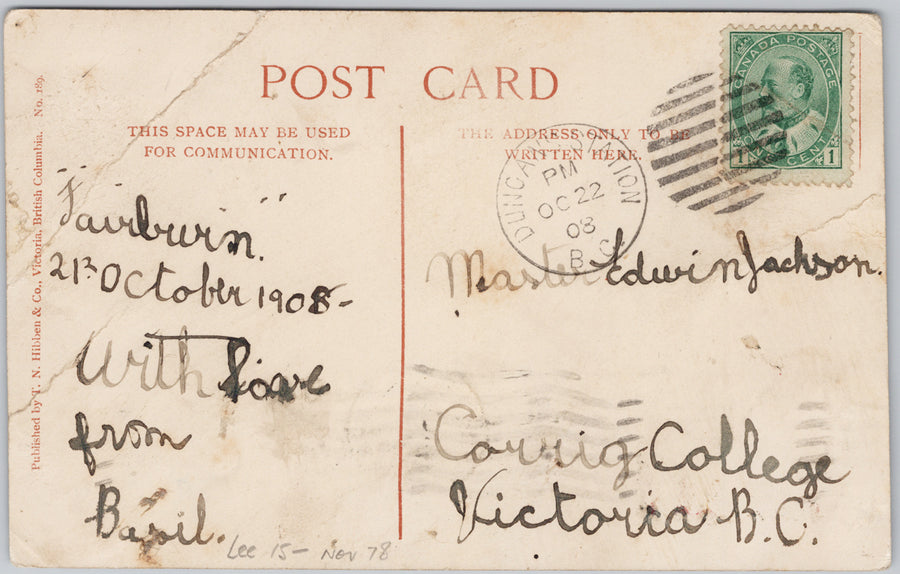 POST CARD
THIS SPACE MAY BE USED
FOR COMMUNICATION.
THE ADDRESS ONLY TO BE
WRITTEN HERE.
CANADA POSTAGE
1 CENT 1
DUNCAN STATION
PM
OC 22
08
B.C.
"Fairburn".
21st October 1908-
With love
from
Basil.
Master Edwin Jackson.
Corrig College
Victoria B.C.
Lee 15- Nov 78
Published by T. N. Hibben & Co., Victoria, British Columbia. No. 189.